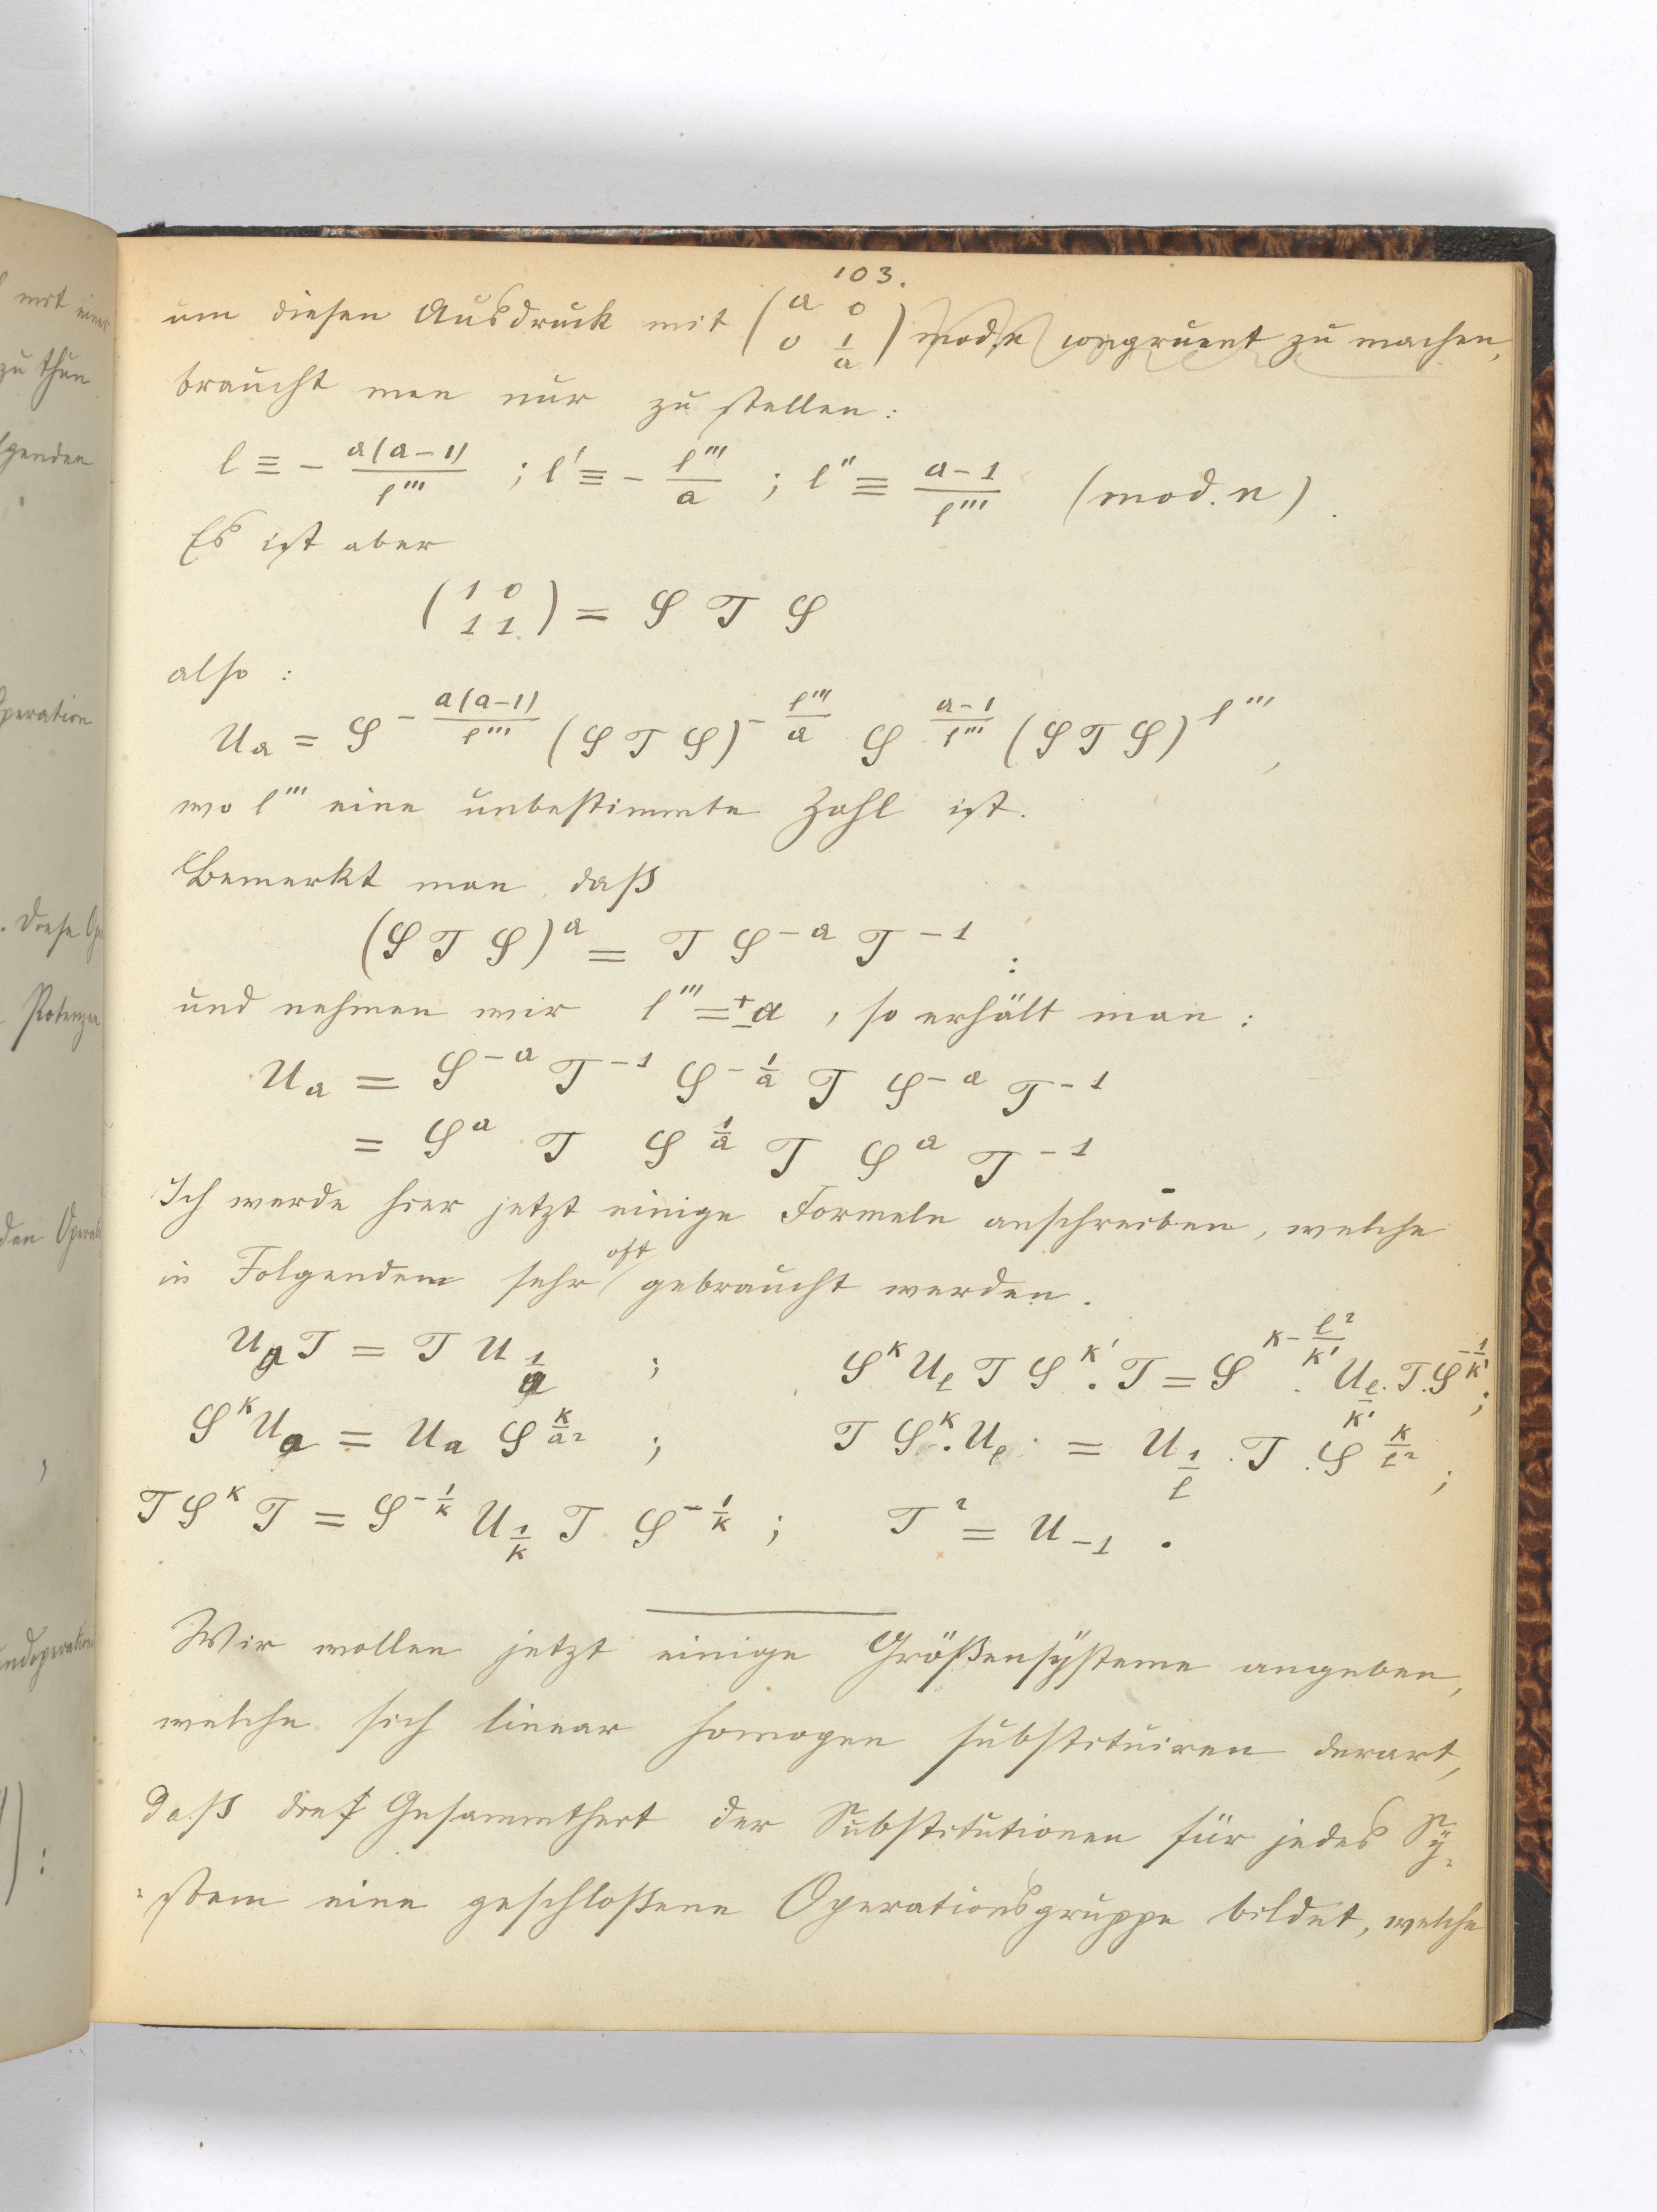 103.
um diesen Ausdruck mit (a 0 / 0 1/a) mod. n congruent zu machen,
braucht man nur zu stellen:
l ≡ - a(a-1)/l''' ; l' ≡ - l'''/a ; l'' ≡ (a-1)/l''' (mod. n).
Es ist aber
(1 0 / 1 1) = S T S
also:
U_a = S^{-a(a-1)/l'''} (S T S)^{-l'''/a} S^{(a-1)/l'''} (S T S)^{l'''},
wo l''' eine unbestimmte Zahl ist.
Bemerkt man, daß
(S T S)^a = T S^{-a} T^{-1} :
und nehmen wir l''' = ±a, so erhält man:
U_a = S^{-a} T^{-1} S^{-1/a} T S^{-a} T^{-1}
= S^a T S^{1/a} T S^a T^{-1}
Ich werde hier jetzt einige Formeln anschreiben, welche
in Folgendem sehr oft gebraucht werden.
U_a T = T U_{1/a} ; S^k U_l T S^{k'}. T = S^{k - l²/k'} . U_{l/k'}. T. S^{-1/k'};
S^k U_a = U_a S^{k/a²} ; T S^k. U_l = U_{1/l} . T . S^{k/l²} ;
T S^k T = S^{-1/k} U_{1/k} T S^{-1/k} ; T² = U_{-1} .
Wir wollen jetzt einige Größensÿsteme angeben,
welche sich linear homogen substituiren derart,
daß die Gesammtheit der Substitutionen für jedes Sÿ-
stem eine geschloßene Operationsgruppe bildet, welche
mit einer
zu thun
lgenden
Operation
. Diese
Potenzen
den